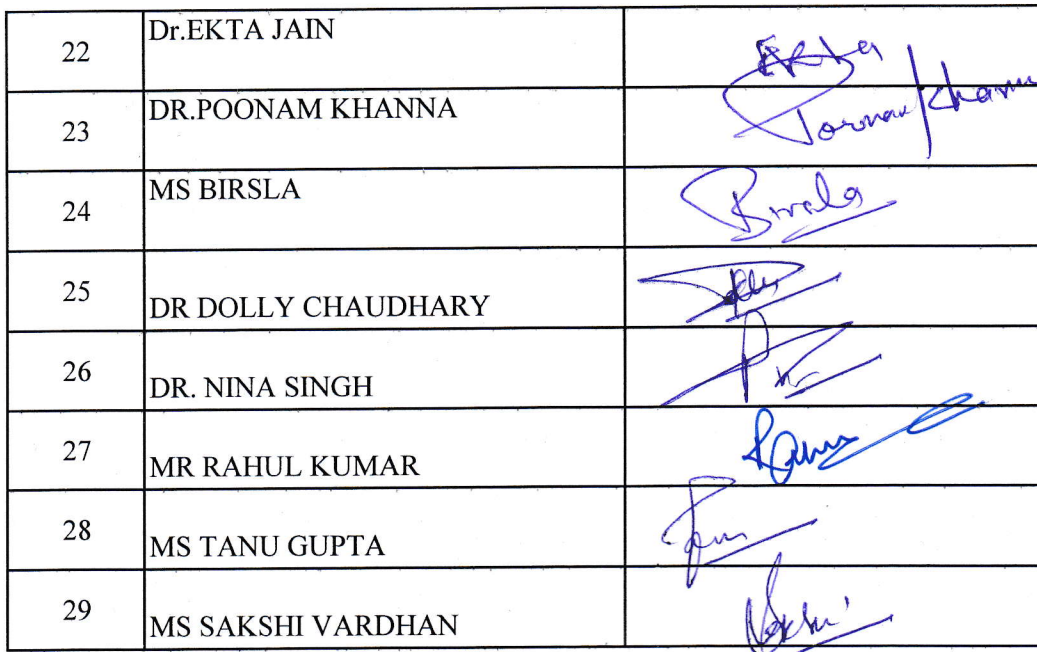 22 Dr.EKTA JAIN Ekta
23 DR.POONAM KHANNA Poonam Khanna
24 MS BIRSLA Birsla
25 DR DOLLY CHAUDHARY
26 DR. NINA SINGH
27 MR RAHUL KUMAR
28 MS TANU GUPTA
29 MS SAKSHI VARDHAN Sakshi